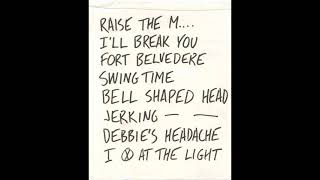 RAISE THE M....
I'LL BREAK YOU
FORT BELVEDERE
SWING TIME
BELL SHAPED HEAD
JERKING — —
DEBBIE'S HEADACHE
I Ⓧ AT THE LIGHT